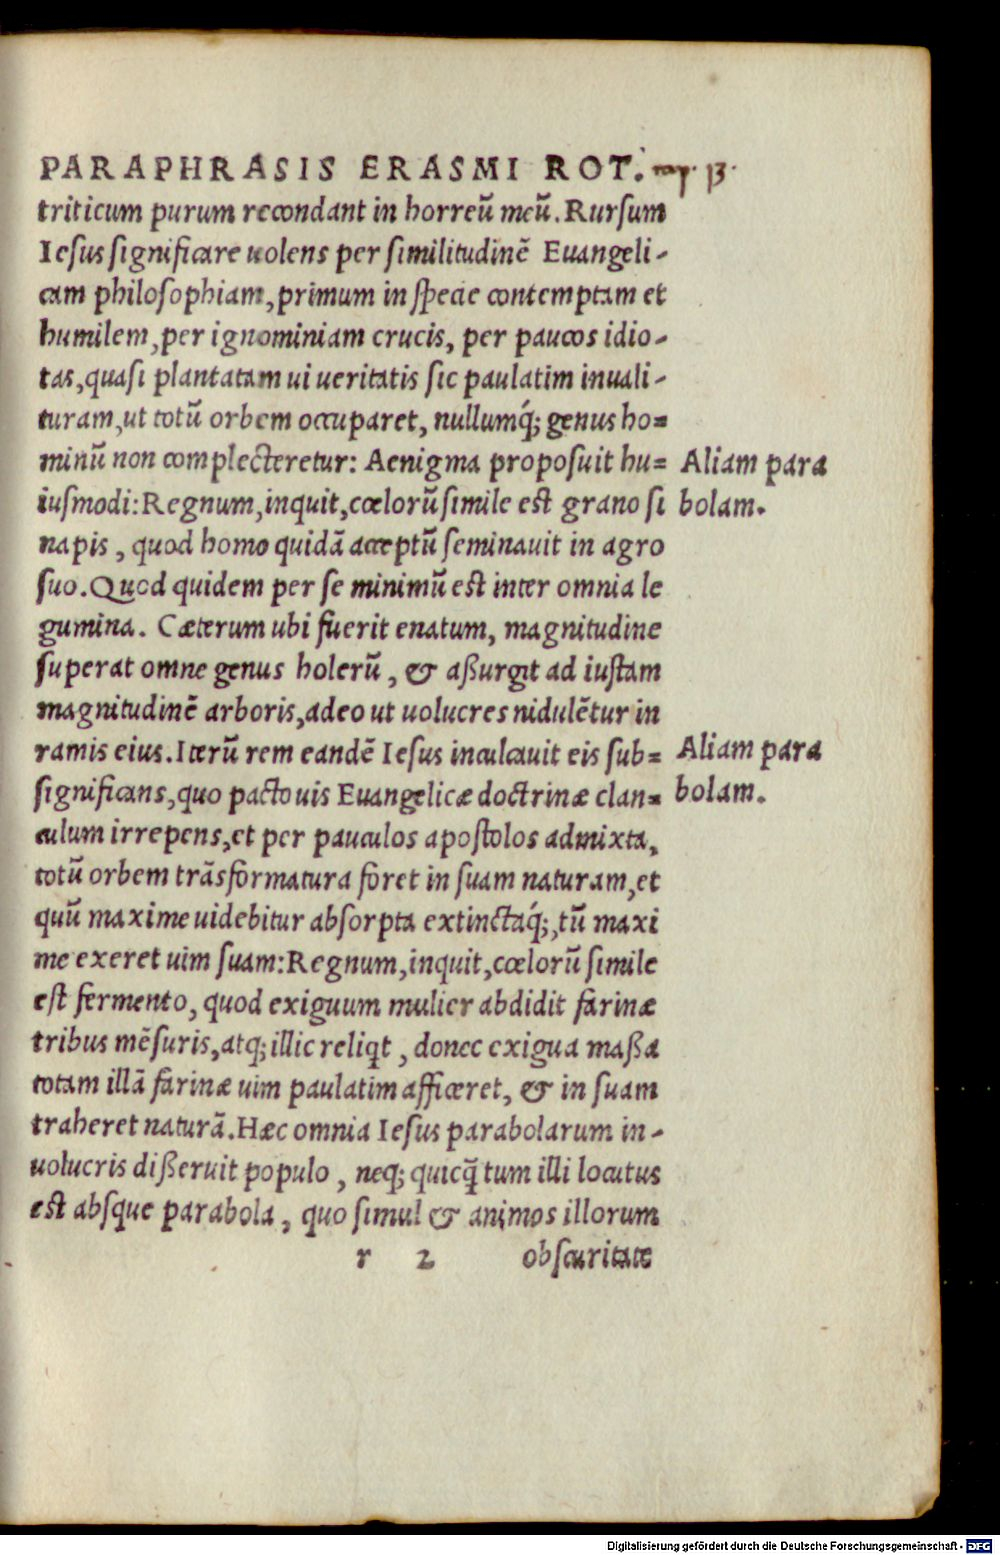 PARAPHRASIS ERASMI ROT.
triticum purum recondant in horreũ meũ. Rursum
Iesus significare uolens per similitudinẽ Euangeli-
cam philosophiam, primum in specie contemptam et
humilem, per ignominiam crucis, per paucos idio-
tas, quasi plantatam ui ueritatis sic paulatim inuali-
turam, ut totũ orbem occuparet, nullumq́; genus ho=
minũ non complecteretur: Aenigma proposuit hu=
Aliam para
iusmodi: Regnum, inquit, cœlorũ simile est grano si
bolam.
napis, quod homo quidã acceptũ seminauit in agro
suo. Quod quidem per se minimũ est inter omnia le
gumina. Cæterum ubi fuerit enatum, magnitudine
superat omne genus holerũ, & aßurgit ad iustam
magnitudinẽ arboris, adeo ut uolucres nidulẽtur in
ramis eius. Iterũ rem eandẽ Iesus inculcauit eis sub=
Aliam para
significans, quo pacto uis Euangelicæ doctrinæ clan=
bolam.
culum irrepens, et per pauculos apostolos admixta,
totũ orbem trãsformatura foret in suam naturam, et
quũ maxime uidebitur absorpta extinctaq́;, tũ maxi
me exeret uim suam: Regnum, inquit, cœlorũ simile
est fermento, quod exiguum mulier abdidit farinæ
tribus mẽsuris, atq; illic reliq̃t, donec exigua maßa
totam illã farinæ uim paulatim afficeret, & in suam
traheret naturã. Hæc omnia Iesus parabolarum in-
uolucris dißeruit populo, neq; quicq̃ tum illi locutus
est absque parabola, quo simul & animos illorum
r 2 obscuritate
Digitalisierung gefördert durch die Deutsche Forschungsgemeinschaft - DFG